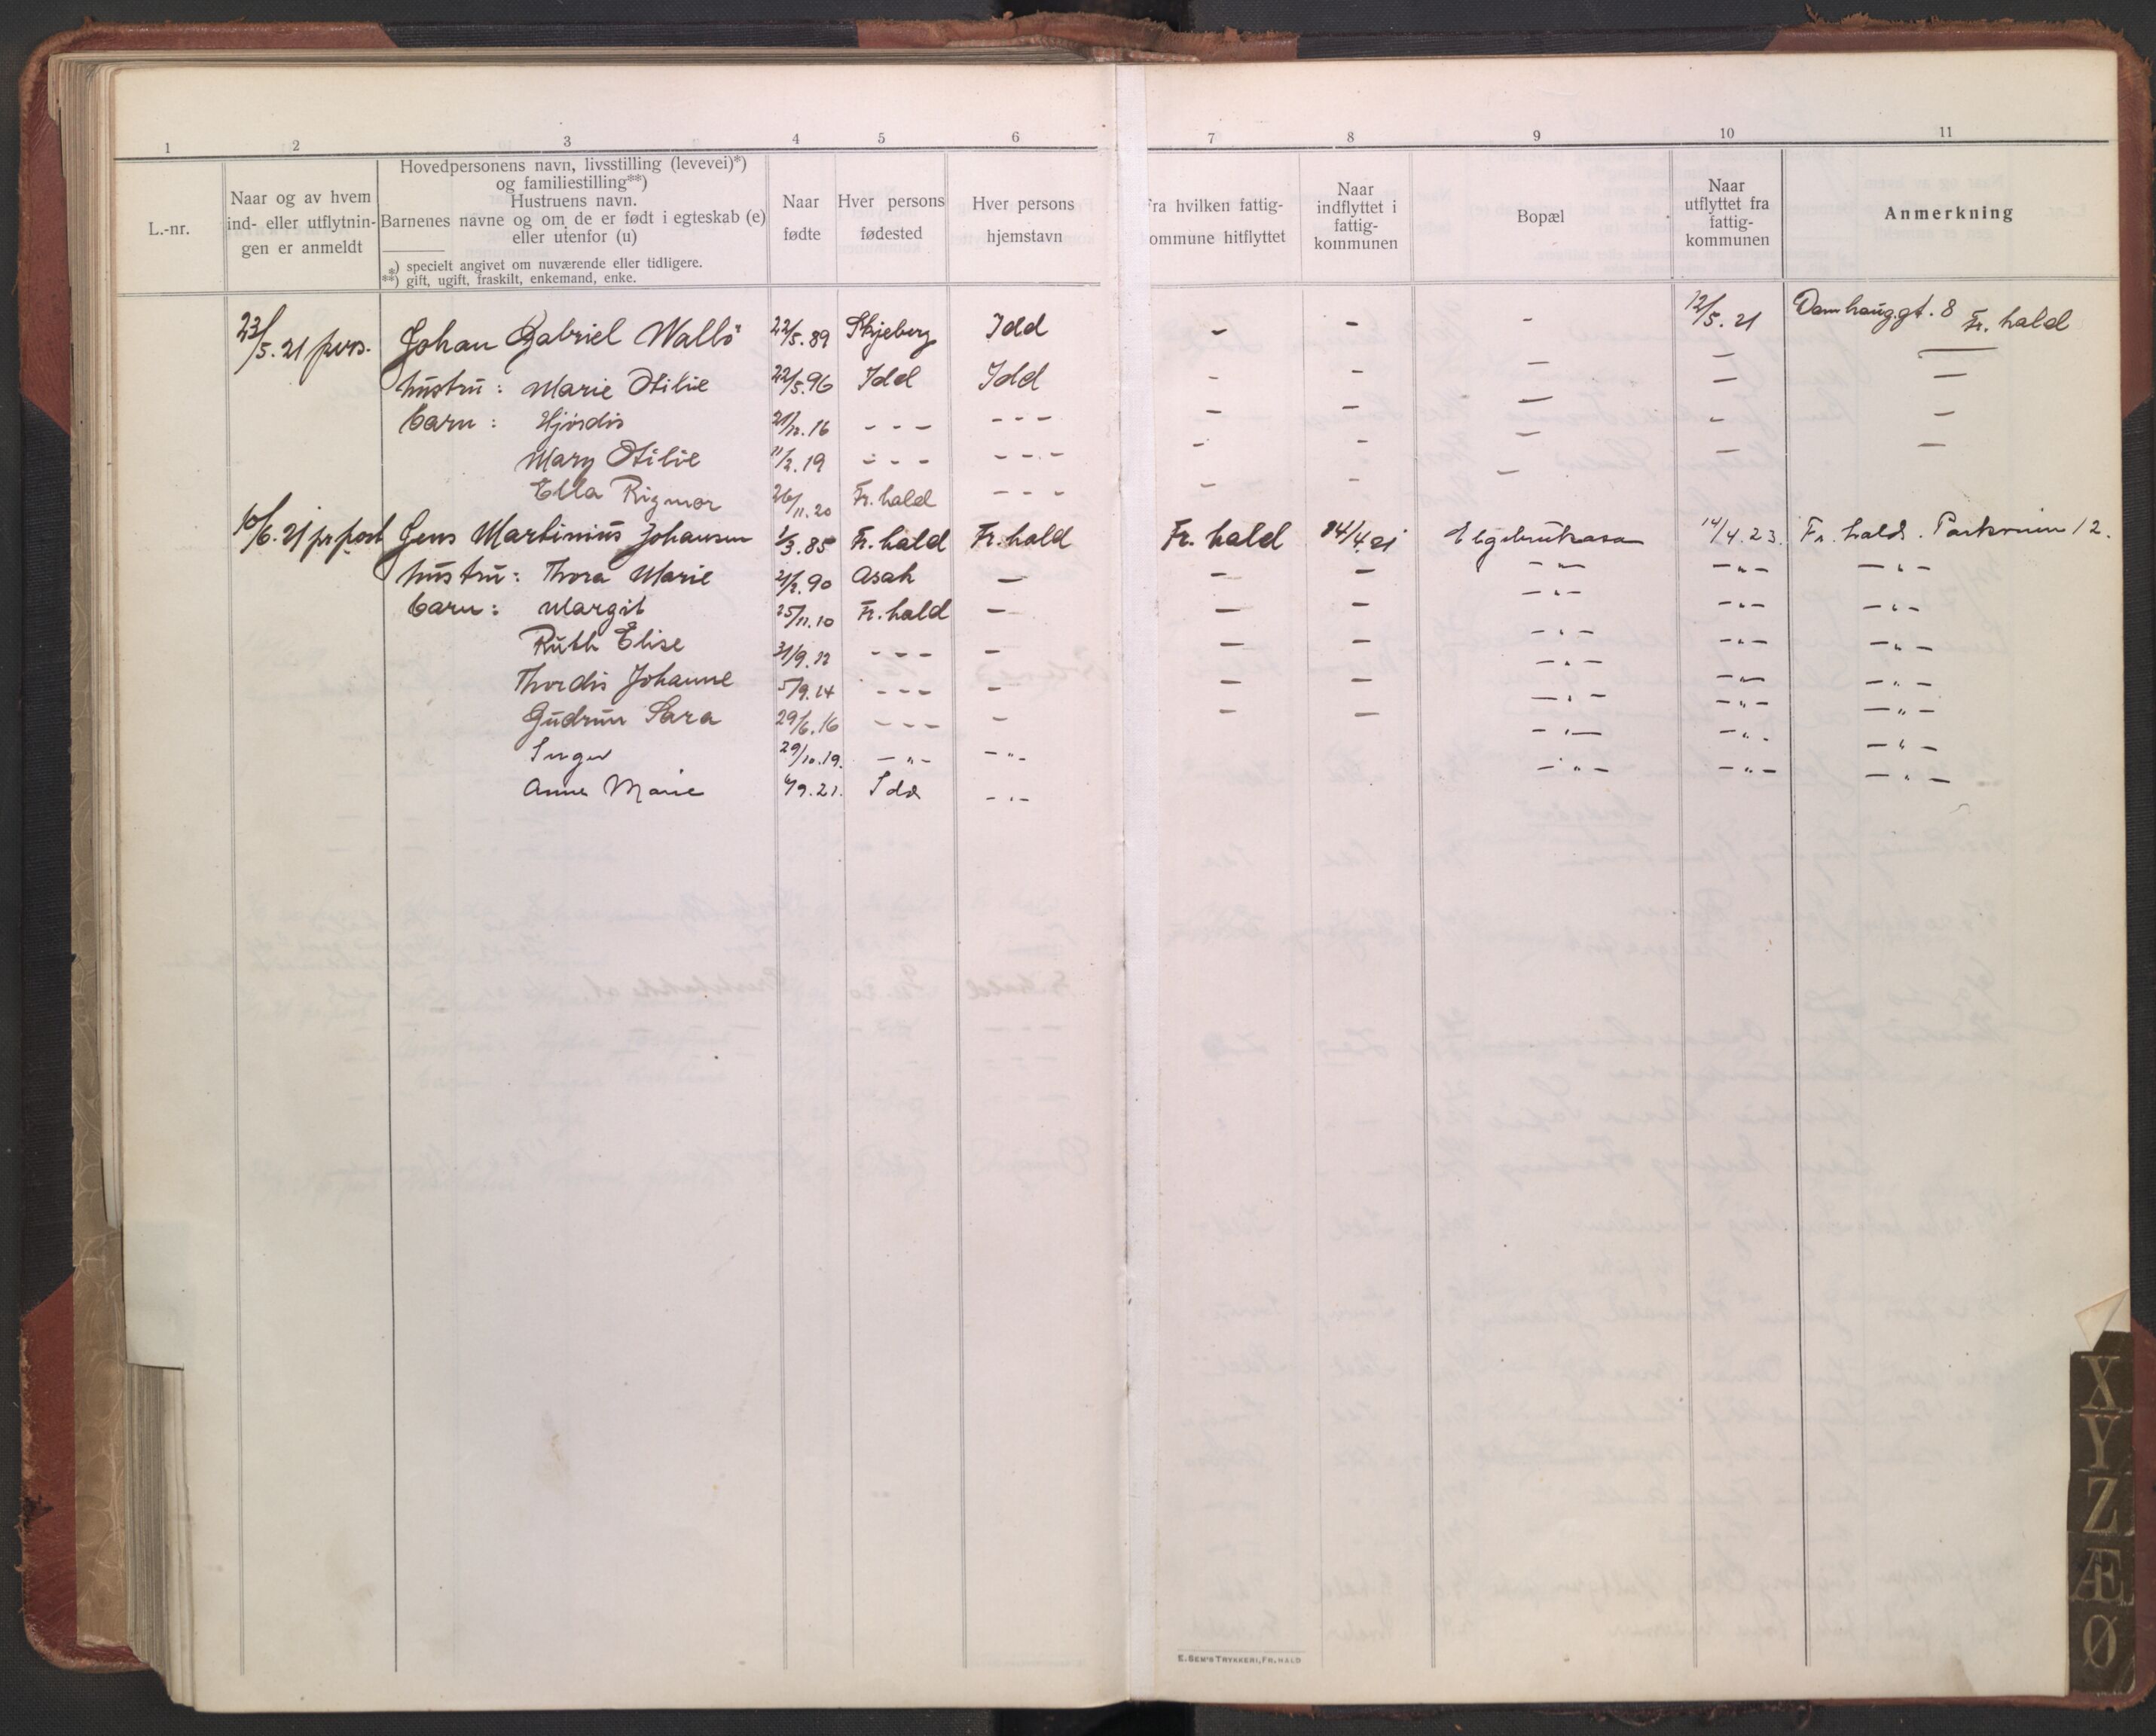 1 2 3 4 5 6 7 8 9 10 11
L.-nr.
Naar og av hvem
ind- eller utflytnin-
gen er anmeldt
Hovedpersonens navn, livsstilling (levevei)*)
og familiestilling**)
Hustruens navn.
Barnenes navne og om de er født i egteskab (e)
eller utenfor (u)
*) specielt angivet om nuværende eller tidligere.
**) gift, ugift, fraskilt, enkemand, enke.
Naar
fødte
Hver persons
fødested
Hver persons
hjemstavn
Fra hvilken fattig-
ommune hitflyttet
Naar
indflyttet i
fattig-
kommunen
Bopæl
Naar
utflyttet fra
fattig-
kommunen
Anmerkning
23/5.21 pers. Johan Gabriel Wallö 22/5.89 Skjeberg Idd - - - 12/5.21 Damhauggt. 8 Fr. hald
hustru: Marie Otilie 22/5.96 Idd Idd - - - - -
barn: Hjørdis 21/12.16 - - - - - - - - - - -
Mary Otilie 11/2.19 - - - - - - - - - - -
Ella Rigmor 26/11.20 Fr. hald - - - - - - - -
10/6.21 pr post Jens Martinius Johansen 1/3.85 Fr. hald Fr. hald Fr. hald 14/4.21 14/4.23. Fr. hald. 12.
hustru: Thora Marie 21/2.90 Asak - - - -"- -"- -"-
barn: Margit 25/11.10 Fr. hald - - - -"- -"- -"-
Ruth Elise 21/9.12 - - - - - - -"- -"- -"-
Thordis Johanne 5/9.14 - - - - - - -"- -"- -"-
Gudrun Sara 29/6.16 - - - - - - -"- -"- -"-
Inger 29/10.19. -"- -"- -"- -"- -"-
Anne Marie 4/9.21. Idd -"- -"- -"- -"-
E. SEM'S TRYKKERI, FR.HALD
X
Y
Z
Æ
Ø